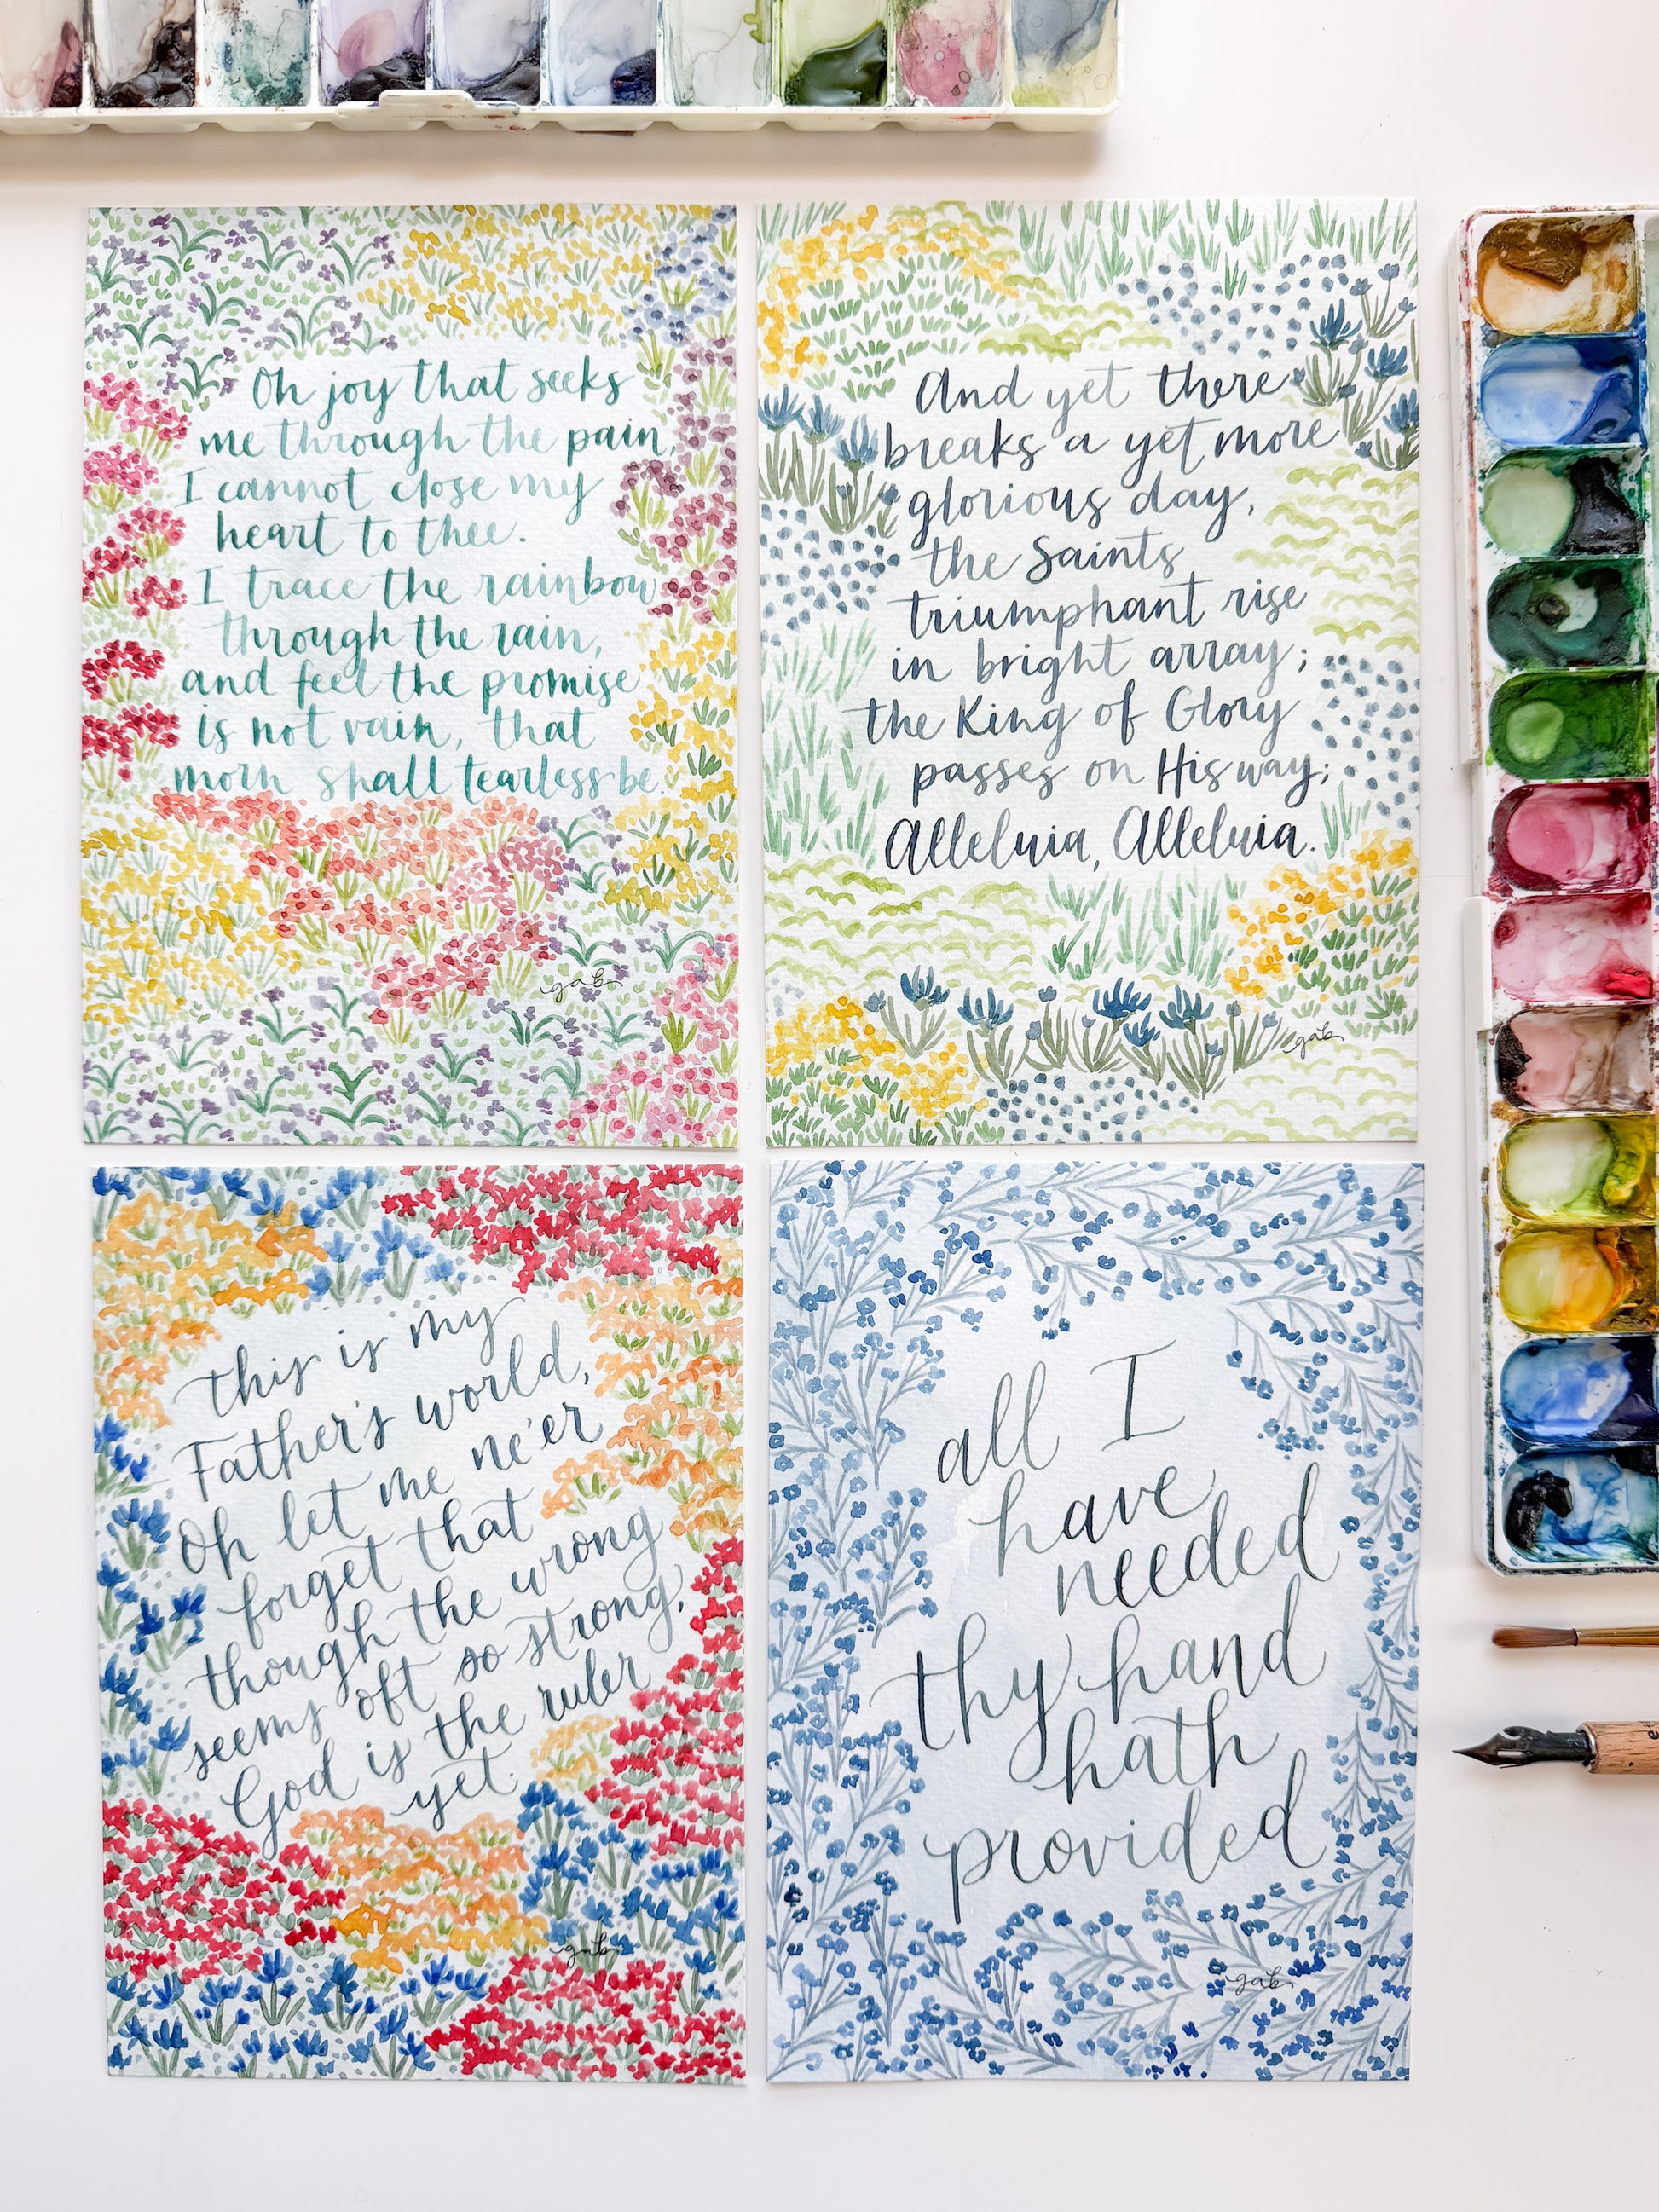 Oh joy that seeks
me through the pain,
I cannot close my
heart to thee.
I trace the rainbow
through the rain,
and feel the promise
is not vain, that
morn shall tearless be.
gab
And yet there
breaks a yet more
glorious day,
the Saints
triumphant rise
in bright array;
the King of Glory
passes on His way;
Alleluia, Alleluia.
gab
this is my
Father's world,
Oh let me ne'er
forget that
though the wrong
seems oft so strong,
God is the ruler
yet.
gab
all I
have
needed
thy hand
hath
provided
gab